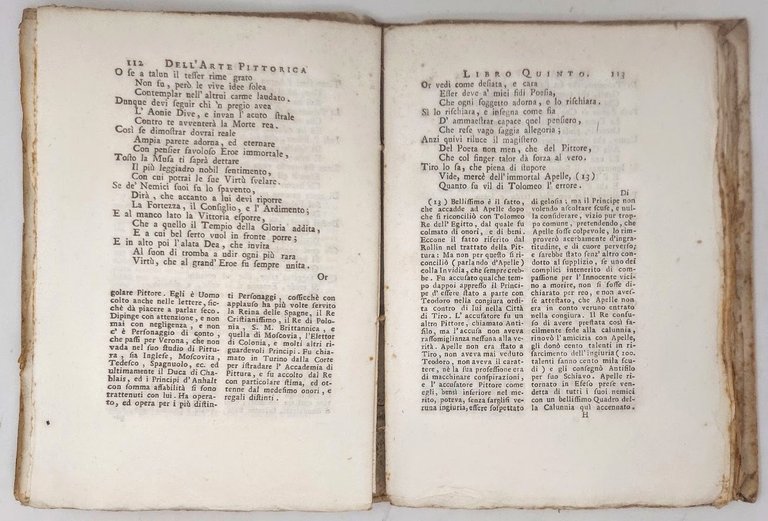 112 DELL'ARTE PITTORICA
O se a talun il tesser rime grato
Non fu, però le vive idee solea
Contemplar nell'altrui carme laudato.
Dunque devi seguir chi 'n pregio avea
L'Aonie Dive, e invan l'acuto strale
Contro te avventerà la Morte rea.
Così se dimostrar dovrai reale
Ampia parete adorna, ed eternare
Con pensier favoloso Eroe immortale,
Tosto la Musa ti saprà dettare
Il più leggiadro nobil sentimento,
Con cui potrai le sue Virtù svelare.
Se de' Nemici suoi fu lo spavento,
Dirà, che accanto a lui devi riporre
La Fortezza, il Consiglio, e l'Ardimento;
E al manco lato la Vittoria esporre,
Che a quello il Tempio della Gloria addita,
E a cui bel serto vuol in fronte porre;
E in alto poi l'alata Dea, che invita
Al suon di tromba a udir ogni più rara
Virtù, che al grand'Eroe fu sempre unita.
Or
golare Pittore. Egli è Uomo
colto anche nelle lettere, sicchè
dà piacere a parlar seco.
Dipinge con attenzione, e non
mai con negligenza, e non
c'è Personaggio di conto,
che passi per Verona, che non
vada nel suo studio di Pittura,
sia Inglese, Moscovita,
Tedesco, Spagnuolo, ec. ed
ultimamente il Duca di Chablais,
ed i Principi d'Anhalt
con somma affabilità si sono
trattenuti con lui. Ha operato,
ed opera per i più distinti
Personaggi, cosicchè con
applauso ha più volte servito
la Reina delle Spagne, il Re
Cristianissimo, il Re di Polonia,
S. M. Brittannica, e
quella di Moscovia, l'Elettor
di Colonia, e molti altri riguardevoli
Principi. Fu chiamato
in Turino dalla Corte
per istradare l'Accademia di
Pittura, e fu accolto dal Re
con particolare stima, ed ottenne
dal medesimo onori, e
regali distinti.
LIBRO QUINTO. 113
Or vedi come desiata, e cara
Esser deve a' miei fidi Poesia,
Che ogni soggetto adorna, e lo rischiara.
Sì lo rischiara, e insegna come sia
D'ammaestrar capace quel pensiero,
Che rese vago saggia allegoria;
Anzi quivi riluce il magistero
Del Poeta non men, che del Pittore,
Che col finger talor dà forza al vero.
Tiro lo sa, che piena di stupore
Vide, mercè dell'immortal Apelle, (13)
Quanto fu vil di Tolomeo l'errore.
Di
(13) Bellissimo è il fatto,
che accadde ad Apelle dopo
che si riconciliò con Tolomeo
Re dell'Egitto, dal quale fu
colmato di onori, e di beni.
Eccone il fatto riferito dal
Rollin nel trattato della Pittura:
Ma non per questo si riconciliò
(parlando d'Apelle)
colla Invidia, che sempre crebbe.
Fu accusato qualche tempo
dappoi appresso il Principe
d'essere stato a parte con
Teodoro nella congiura ordita
contro di lui nella Città
di Tiro. L'accusatore fu un
altro Pittore, chiamato Antifilo,
ma l'accusa non aveva
rassomiglianza nessuna alla verità.
Apelle non era stato a
Tiro, non aveva mai veduto
Teodoro, non aveva il carattere,
nè la sua professione era
di macchinare cospirazioni,
e l'accusatore Pittore come
egli, bensì inferior nel merito,
poteva, senza farglisi veruna
ingiuria, essere sospettato
di gelosia; ma il Principe non
volendo ascoltare scuse, e nulla
considerare, vizio pur troppo
comune, pretendendo, che
Apelle fosse colpevole, lo rimproverà
acerbamente d'ingratitudine,
e di cuore perverso;
e sarebbe stato senz'altro condotto
al supplizio, se uno dei
complici intenerito di compassione
per l'Innocente vicino
a morire, non si fosse dichiarato
per reo, e non avesse
attestato, che Apelle non
era in conto veruno entrato
nella congiura. Il Re confuso
di avere prestata così facilmente
fede alla calunnia,
rinovò l'amicizia con Apelle,
gli donò cento talenti in risarcimento
dell'ingiuria (100.
talenti sanno cento mila scudi)
e gli consegnò Antifilo
per suo Schiavo. Apelle ritornato
in Efeso prese vendetta
di tutti i suoi nemici
con un bellissimo Quadro della
Calunnia quì accennato.
H